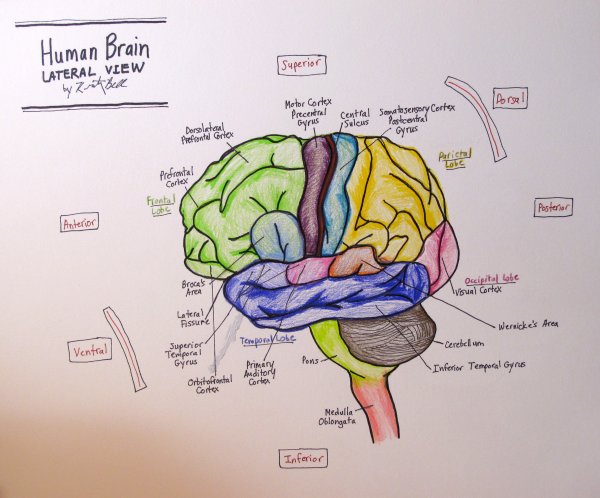 Human Brain
LATERAL VIEW
by
Superior
Dorsal
Motor Cortex
Precentral
Gyrus
Central
Sulcus
Somatosensory Cortex
Postcentral
Gyrus
Dorsolateral
Prefrontal Cortex
Parietal
Lobe
Prefrontal
Cortex
Frontal
Lobe
Anterior
Posterior
Occipital Lobe
Visual Cortex
Broca's
Area
Lateral
Fissure
Wernicke's Area
Ventral
Superior
Temporal
Gyrus
Temporal Lobe
Cerebellum
Orbitofrontal
Cortex
Primary
Auditory
Cortex
Pons
Inferior Temporal Gyrus
Medulla
Oblongata
Inferior